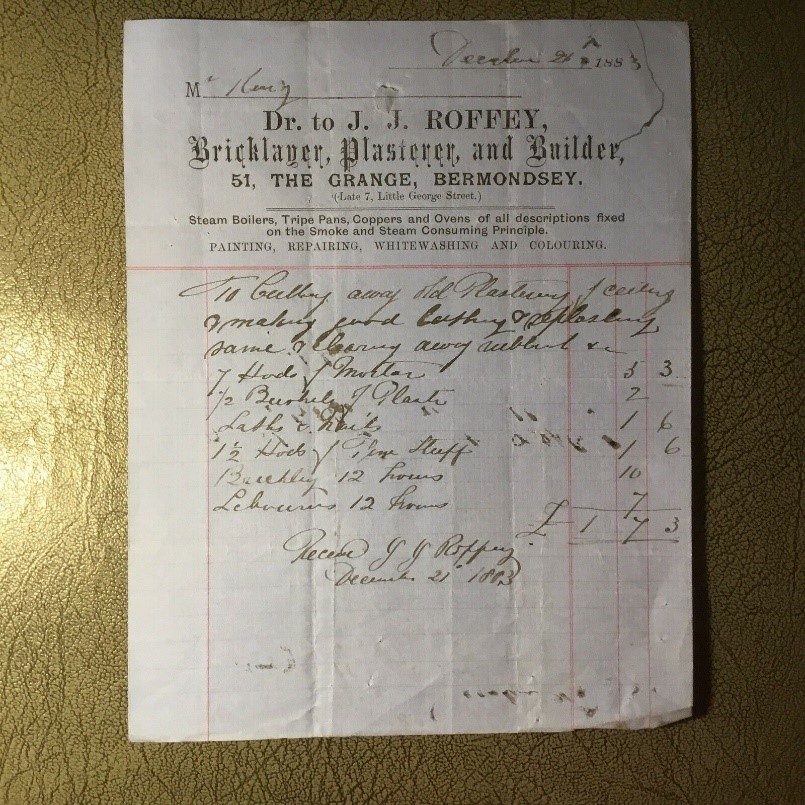 December 21 1883
Mr King
Dr. to J. J. ROFFEY,
Bricklayer, Plasterer, and Builder,
51, THE GRANGE, BERMONDSEY.
(Late 7, Little George Street.)
Steam Boilers, Tripe Pans, Coppers and Ovens of all descriptions fixed
on the Smoke and Steam Consuming Principle.
PAINTING, REPAIRING, WHITEWASHING AND COLOURING.
To Cutting away old Plastering of ceiling
& making good Lathing & replastering
same & clearing away rubbish &c
7 Hods of Mortar 5 3
1/2 Bushel of Plaster 2
Laths & Nails 1 6
1 1/2 Hods of Fine Stuff 1 6
12 hours 10
Labourers 12 hours 7
£ 1 7 3
J J Roffey
December 21 1883